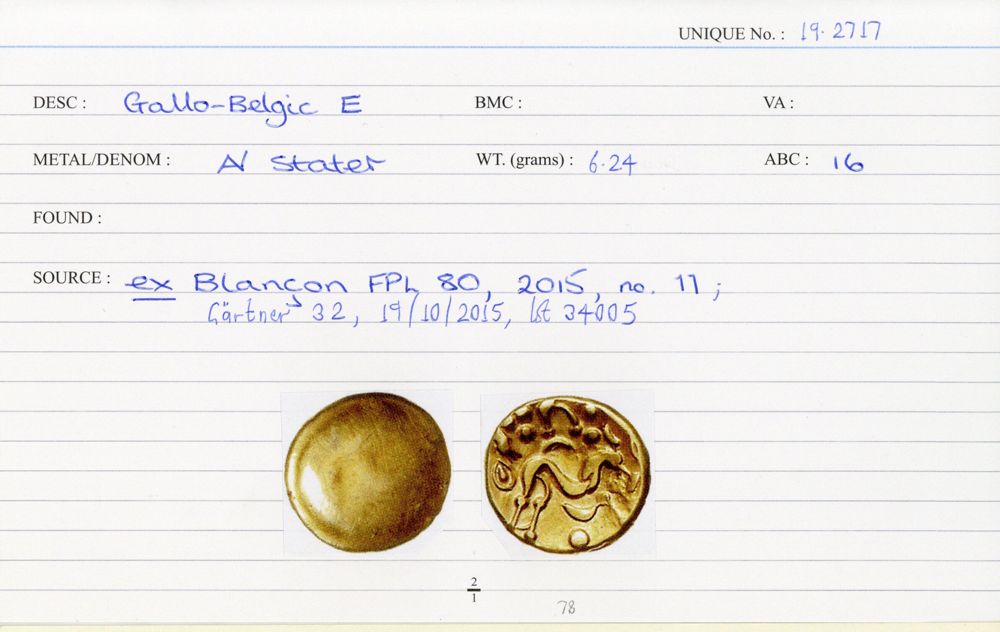 UNIQUE No. : 19.2717
DESC : Gallo-Belgic E BMC : VA :
METAL/DENOM : AV Stater WT. (grams) : 6.24 ABC : 16
FOUND :
SOURCE : ex Blancon FPL 80, 2015, no. 11 ;
Gärtner 32, 19/10/2015, lot 34005
2
1
78